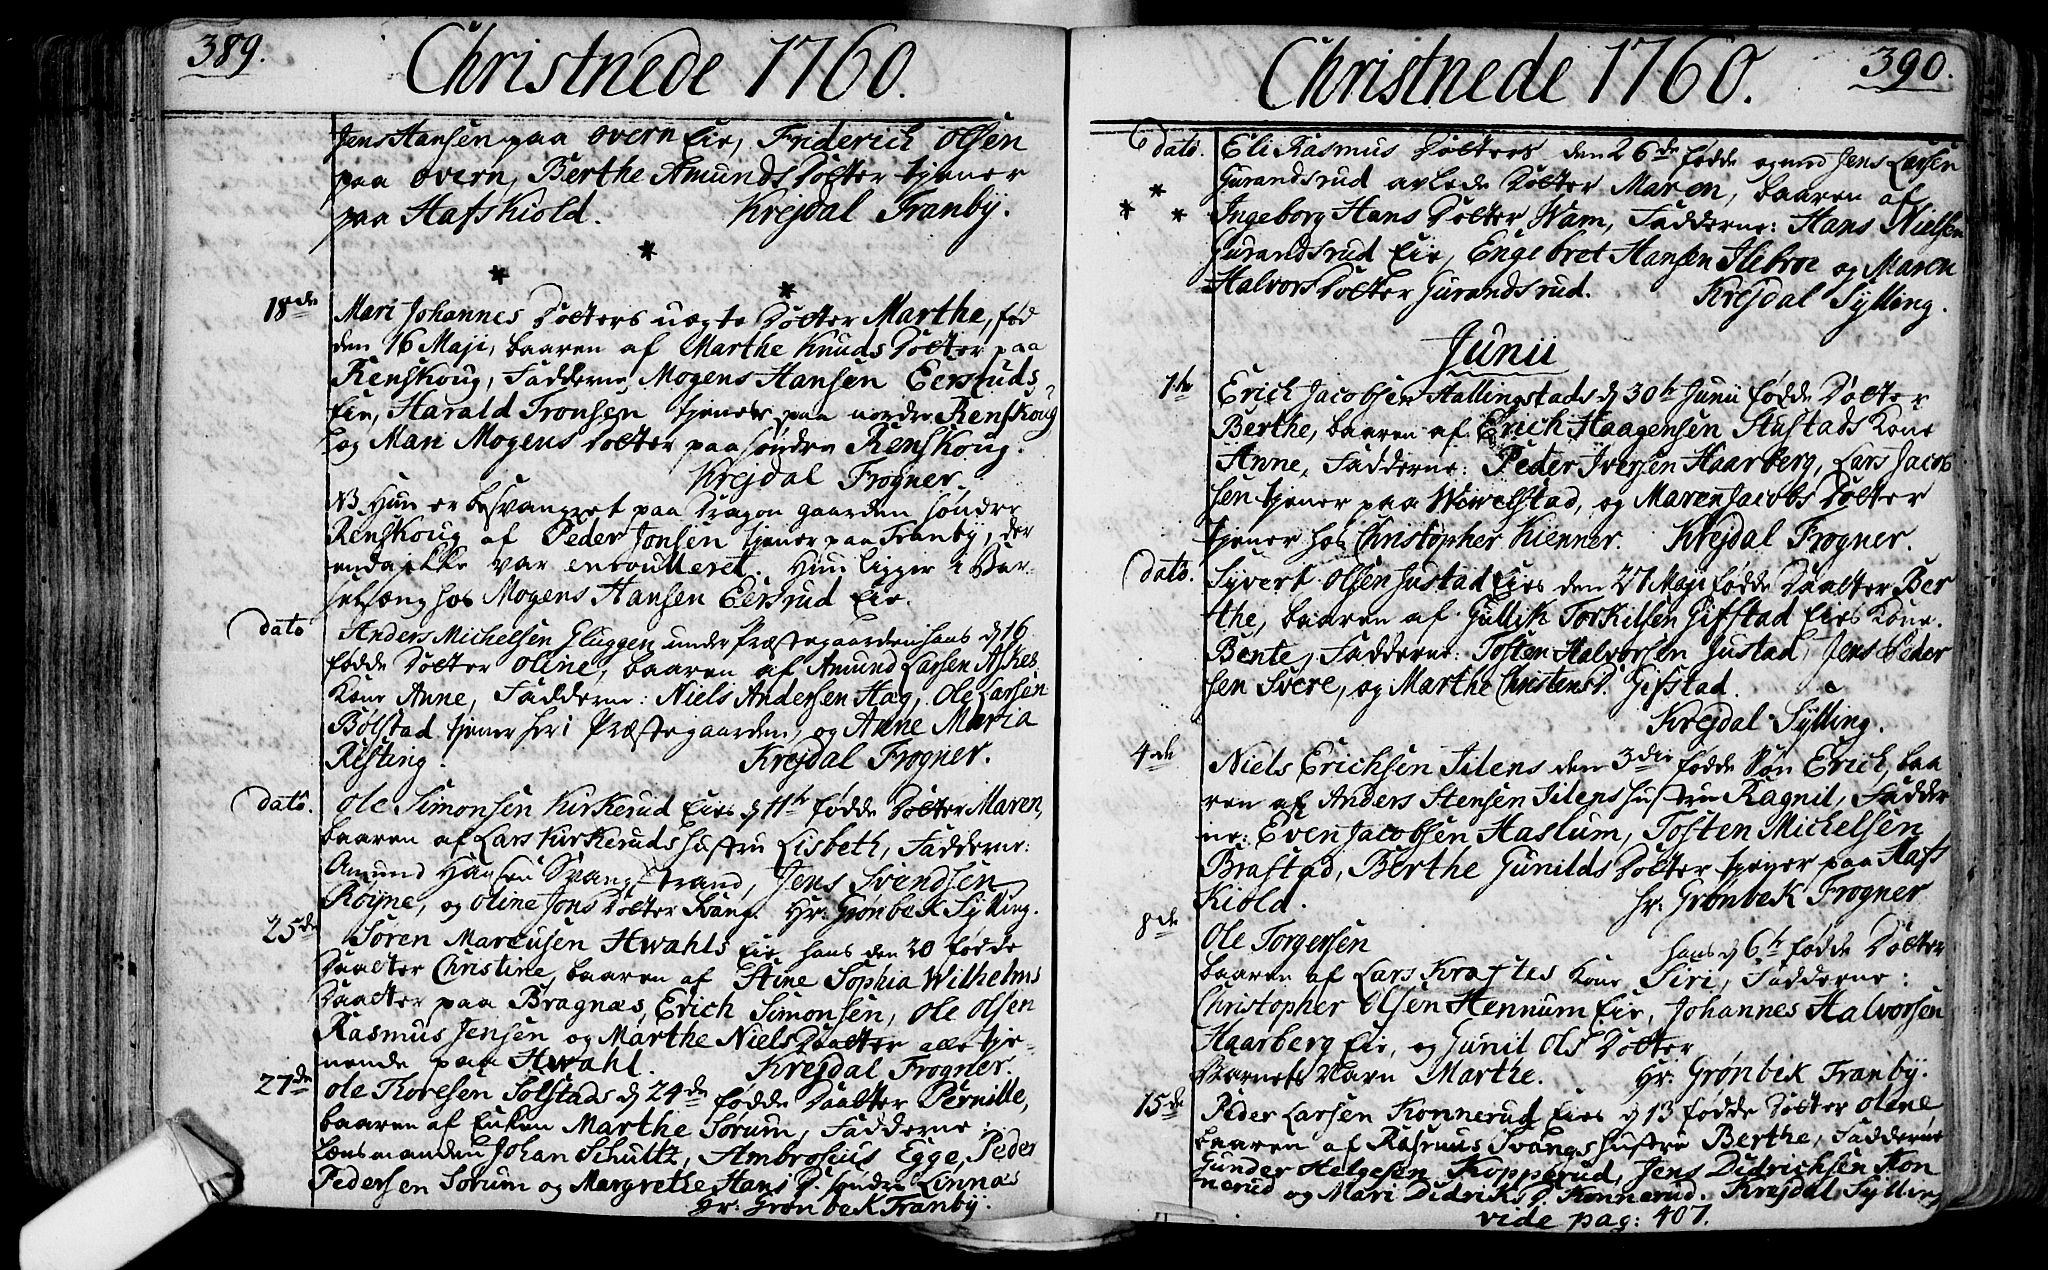 389.
Christnede 1760.
Jens Hansen paa overn Eie, Friderich Olsen
paa overn, Berthe Amunds Dotter tjener
paa Hafskiold. Krejdal Franby.
* * *
18de Mari Johannes Dotters uægte Dotter Marthe, fød
den 16 Maji, baaren af Marthe Knuds Dotter paa
Renskoug, Fadderne, Mogens Hansen Eersruds
Eie, Harald Tronsen tjener paa nordre Renskoug
og Mari Mogens Dotter paa søndre Renskoug.
Krejdal Frogner.
NB. Hun er besvangret paa Dragon gaarden søndre
Renskoug af Peder Jonsen tjener paa Franby, der
enda ikke var enroulleret. Hun ligger i Bar-
selseng hos Mogens Hansen Eersrud Eie.
dato Anders Michelsen Gluggen under Præstegaarden hans d 16
fødde Dotter Oline, baaren af Amund Larsen Askes
Kone Anne, Fadderne: Niels Andersen Hag, Ole Larsen
Bølstad tjener her i Præstegaarden, og Anne Maria
Resting. Krejdal Frogner.
dato. Ole Simonsen Kirkerud Eies d 11te fødde Dotter Maren,
baaren af Lars Kirkeruds Hustru Lisbeth, Fadderne:
Amund Hansen Svangstrand, Jens Svendsen
Røyne, og Oline Jons Dotter Svang. Hr: Grønbek Sylling.
25de Søren Marcusen Hwahls Eie hans den 20 fødde
Daatter Christine, baaren af Stine Sophia Wilhelms
Daatter paa Bragnæs, Erich Simonsen, Ole Olsen
Rasmus Jensen og Marthe Niels Daatter alle tje-
nende paa Hwahl. Krejdal Frogner.
27de Ole Thoresen Solstads d 24de fødde Daatter Pernille,
baaren af Enken Marthe Sorum, Fadderne:
Lensmanden Johan Schultz, Ambrosius Egge, Peder
Pedersen Sorum og Margrethe Hans D. søndre Linnæs
Hr: Grønbek Franby.
390.
Christnede 1760.
dato. Eli Rasmus Dotters den 26de fødde og med Jens Larsen
Gurandsrud avlede Dotter Maren, baaren af
* * *
Ingeborg Hans Dotter Wam, Fadderne: Hans Nielsen
Gurandsrud Eie, Engebret Hansen Ilebroe og Maren
Halvors Dotter Gurandsrud. Krejdal Sylling.
Junii
1te Erich Jacobsen Hallingstads d 30te Junii fødde Dotter
Berthe, baaren af Erich Haagensen Stustads Kone
Anne, Fadderne: Peder Iversen Haarberg, Lars Jacob
sen tjener paa Wiwelstad, og Maren Jacobs Dotter
tjener hos Christopher Kienner. Krejdal Frogner.
dato. Syvert Olsen Justad Eies den 27 Maji fødde Daatter Ber
the, baaren af Gullik Torkilsen Gifstad Eies Kone.
Bente, Fadderne: Tosten Halvorsen Justad, Jens Peder
sen Svere, og Marthe Christens D. Gifstad.
Krejdal Sylling.
4de Niels Erichsen Tilens den 3die fødde Søn Erich, baa
ren af Anders Stensen Tilens Hustru Ragnil, Fadder
ne: Even Jacobsen Haslum, Tosten Michelsen
Brastad, Berthe Gunilds Dotter tjener paa Hafs
Kiold. Hr: Grønbek Frogner
8de Ole Torgersen hans d 6te fødde Dotter
baaren af Lars Kraftes Kone Siri, Fadderne:
Christopher Olsen Hennum Eie, Johannes Halvorsen
Haarberg Eie, og Gunil Ols Dotter
Barnets Navn Marthe. Hr: Grønbek Franby.
15de Peder Larsen Konnerud Eies d 13 fødde Dotter Oline
baaren af Rasmus Svangs Hustru Berthe, Fadderne
Gunder Helgesen Kopperud, Jens Didrichsen Kon
nerud og Mari Didriks D. Konnerud. Krejdal Sylling
vide pag: 407.